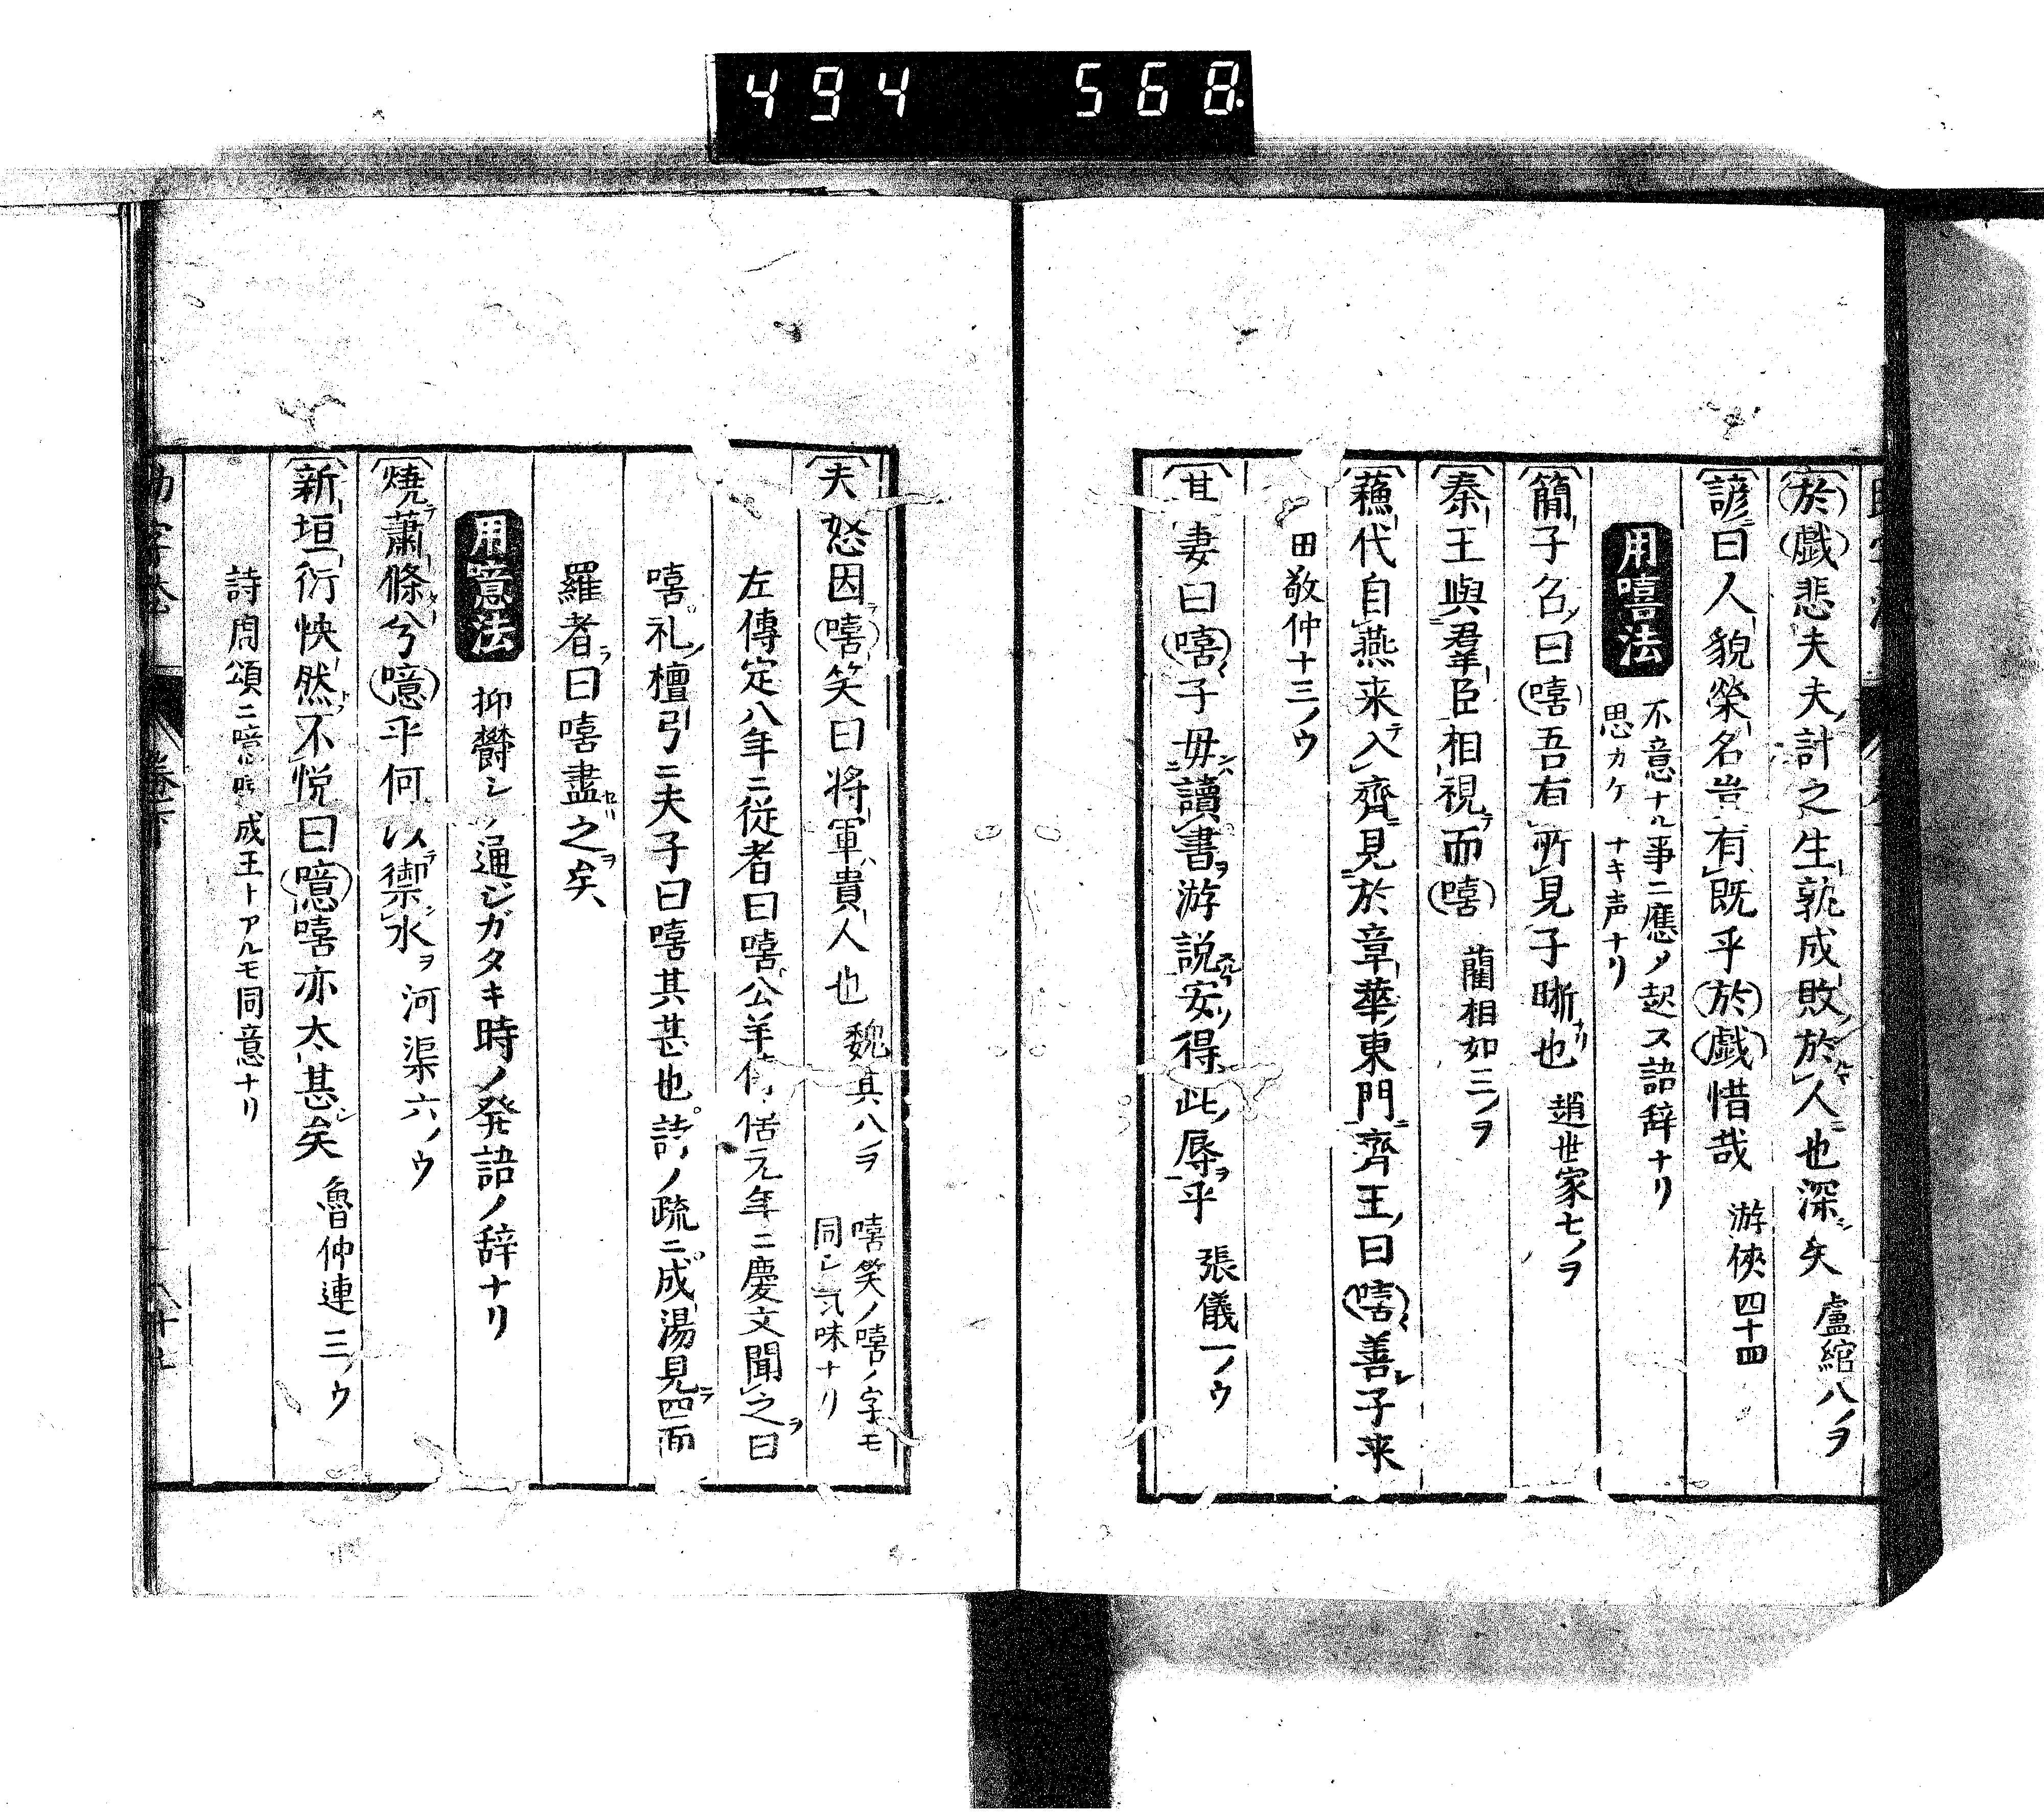 494 568
於戲悲夫夫計之生孰成敗於人也深矣 盧綰八ノヲ
諺曰人貌榮名豈有既乎於戲惜哉 游俠四十四
用嘻法 不意ナル事ニ應メ起ス語辞ナリ
思カケナキ声ナリ
簡子召曰嘻吾有所見子晰也 趙世家七ノヲ
秦王與羣臣相視而嘻 藺相如三ノヲ
蘓代自燕来入齊見於章華東門齊王曰嘻善子来
田敬仲十三ノウ
其妻曰嘻子毋讀書游説安得此辱乎 張儀一ノウ
夫怒因嘻笑曰将軍貴人也 魏其八ヲ 嘻笑ノ嘻ノ字モ
同シ気味ナリ
左傳定八年ニ從者曰嘻公羊僖元年ニ慶父聞之曰
嘻礼檀弓ニ夫子曰嘻其甚也詩ノ疏ニ成湯見四面
羅者曰嘻盡之矣
用噫法 抑欝シノ通ジガタキ時ノ発語ノ辞ナリ
燒蕭條兮噫乎何以禦水 河渠六ノウ
新垣衍怏然不悦曰噫嘻亦太甚矣 魯仲連三ノウ
詩周頌ニ噫嘻成王トアルモ同意ナリ